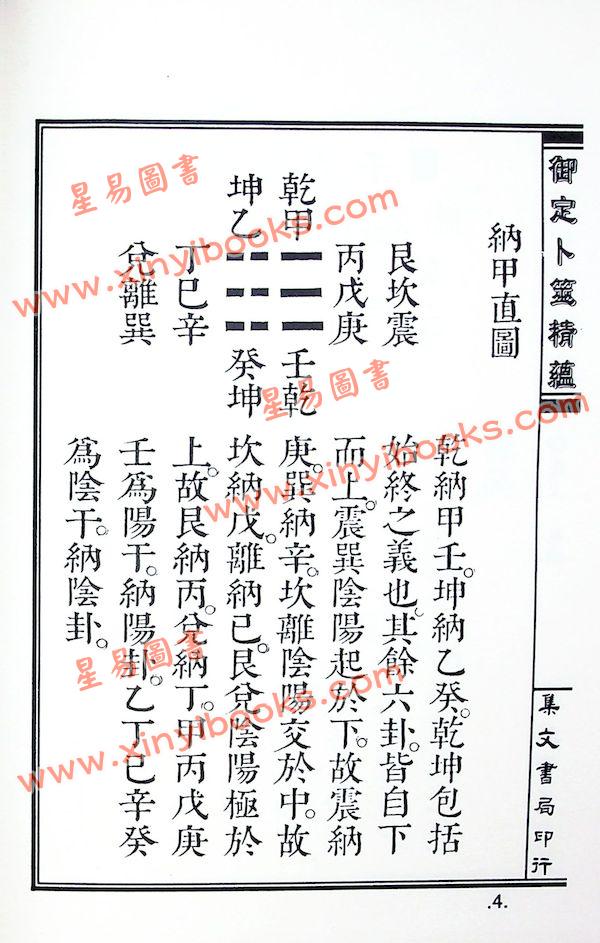 御定卜筮精蘊
集文書局印行
納甲直圖
艮坎震
丙戊庚
乾甲
壬乾
坤乙
癸坤
丁巳辛
兌離巽
乾納甲壬。坤納乙癸。乾坤包括
始終之義也。其餘六卦。皆自下
而上。震巽陰陽起於下。故震納
庚。巽納辛。坎離陰陽交於中。故
坎納戊。離納巳。艮兌陰陽極於
上。故艮納丙。兌納丁。甲丙戊庚
壬爲陽干。納陽卦。乙丁巳辛癸
爲陰干。納陰卦。
.4.
星易圖書
www.xinyibooks.com
星易圖書
www.xinyibooks.com
星易圖書
www.xinyibooks.com